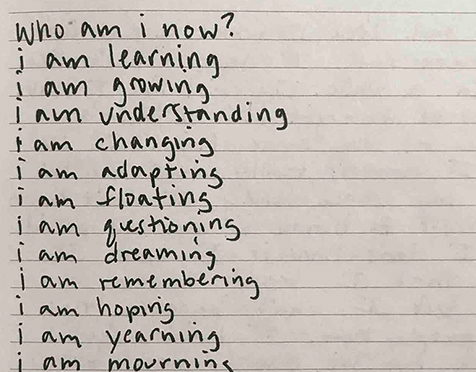 Who am i now?
i am learning
i am growing
i am understanding
i am changing
i am adapting
i am floating
i am questioning
i am dreaming
i am remembering
i am hoping
i am yearning
i am mourning